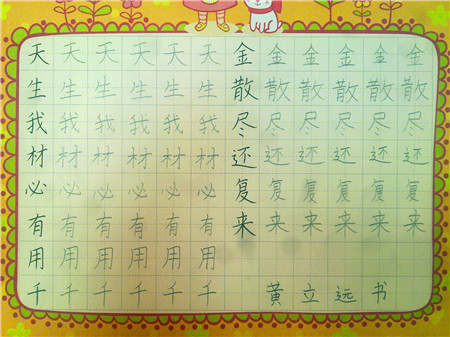 天天天天天天金金金金金金
生生生生生生散散散散散散
我我我我我我尽尽尽尽尽尽
材材材材材材还还还还还还
必必必必必必复复复复复复
有有有有有有来来来来来来
用用用用用用
千千千千千千 黄立远书